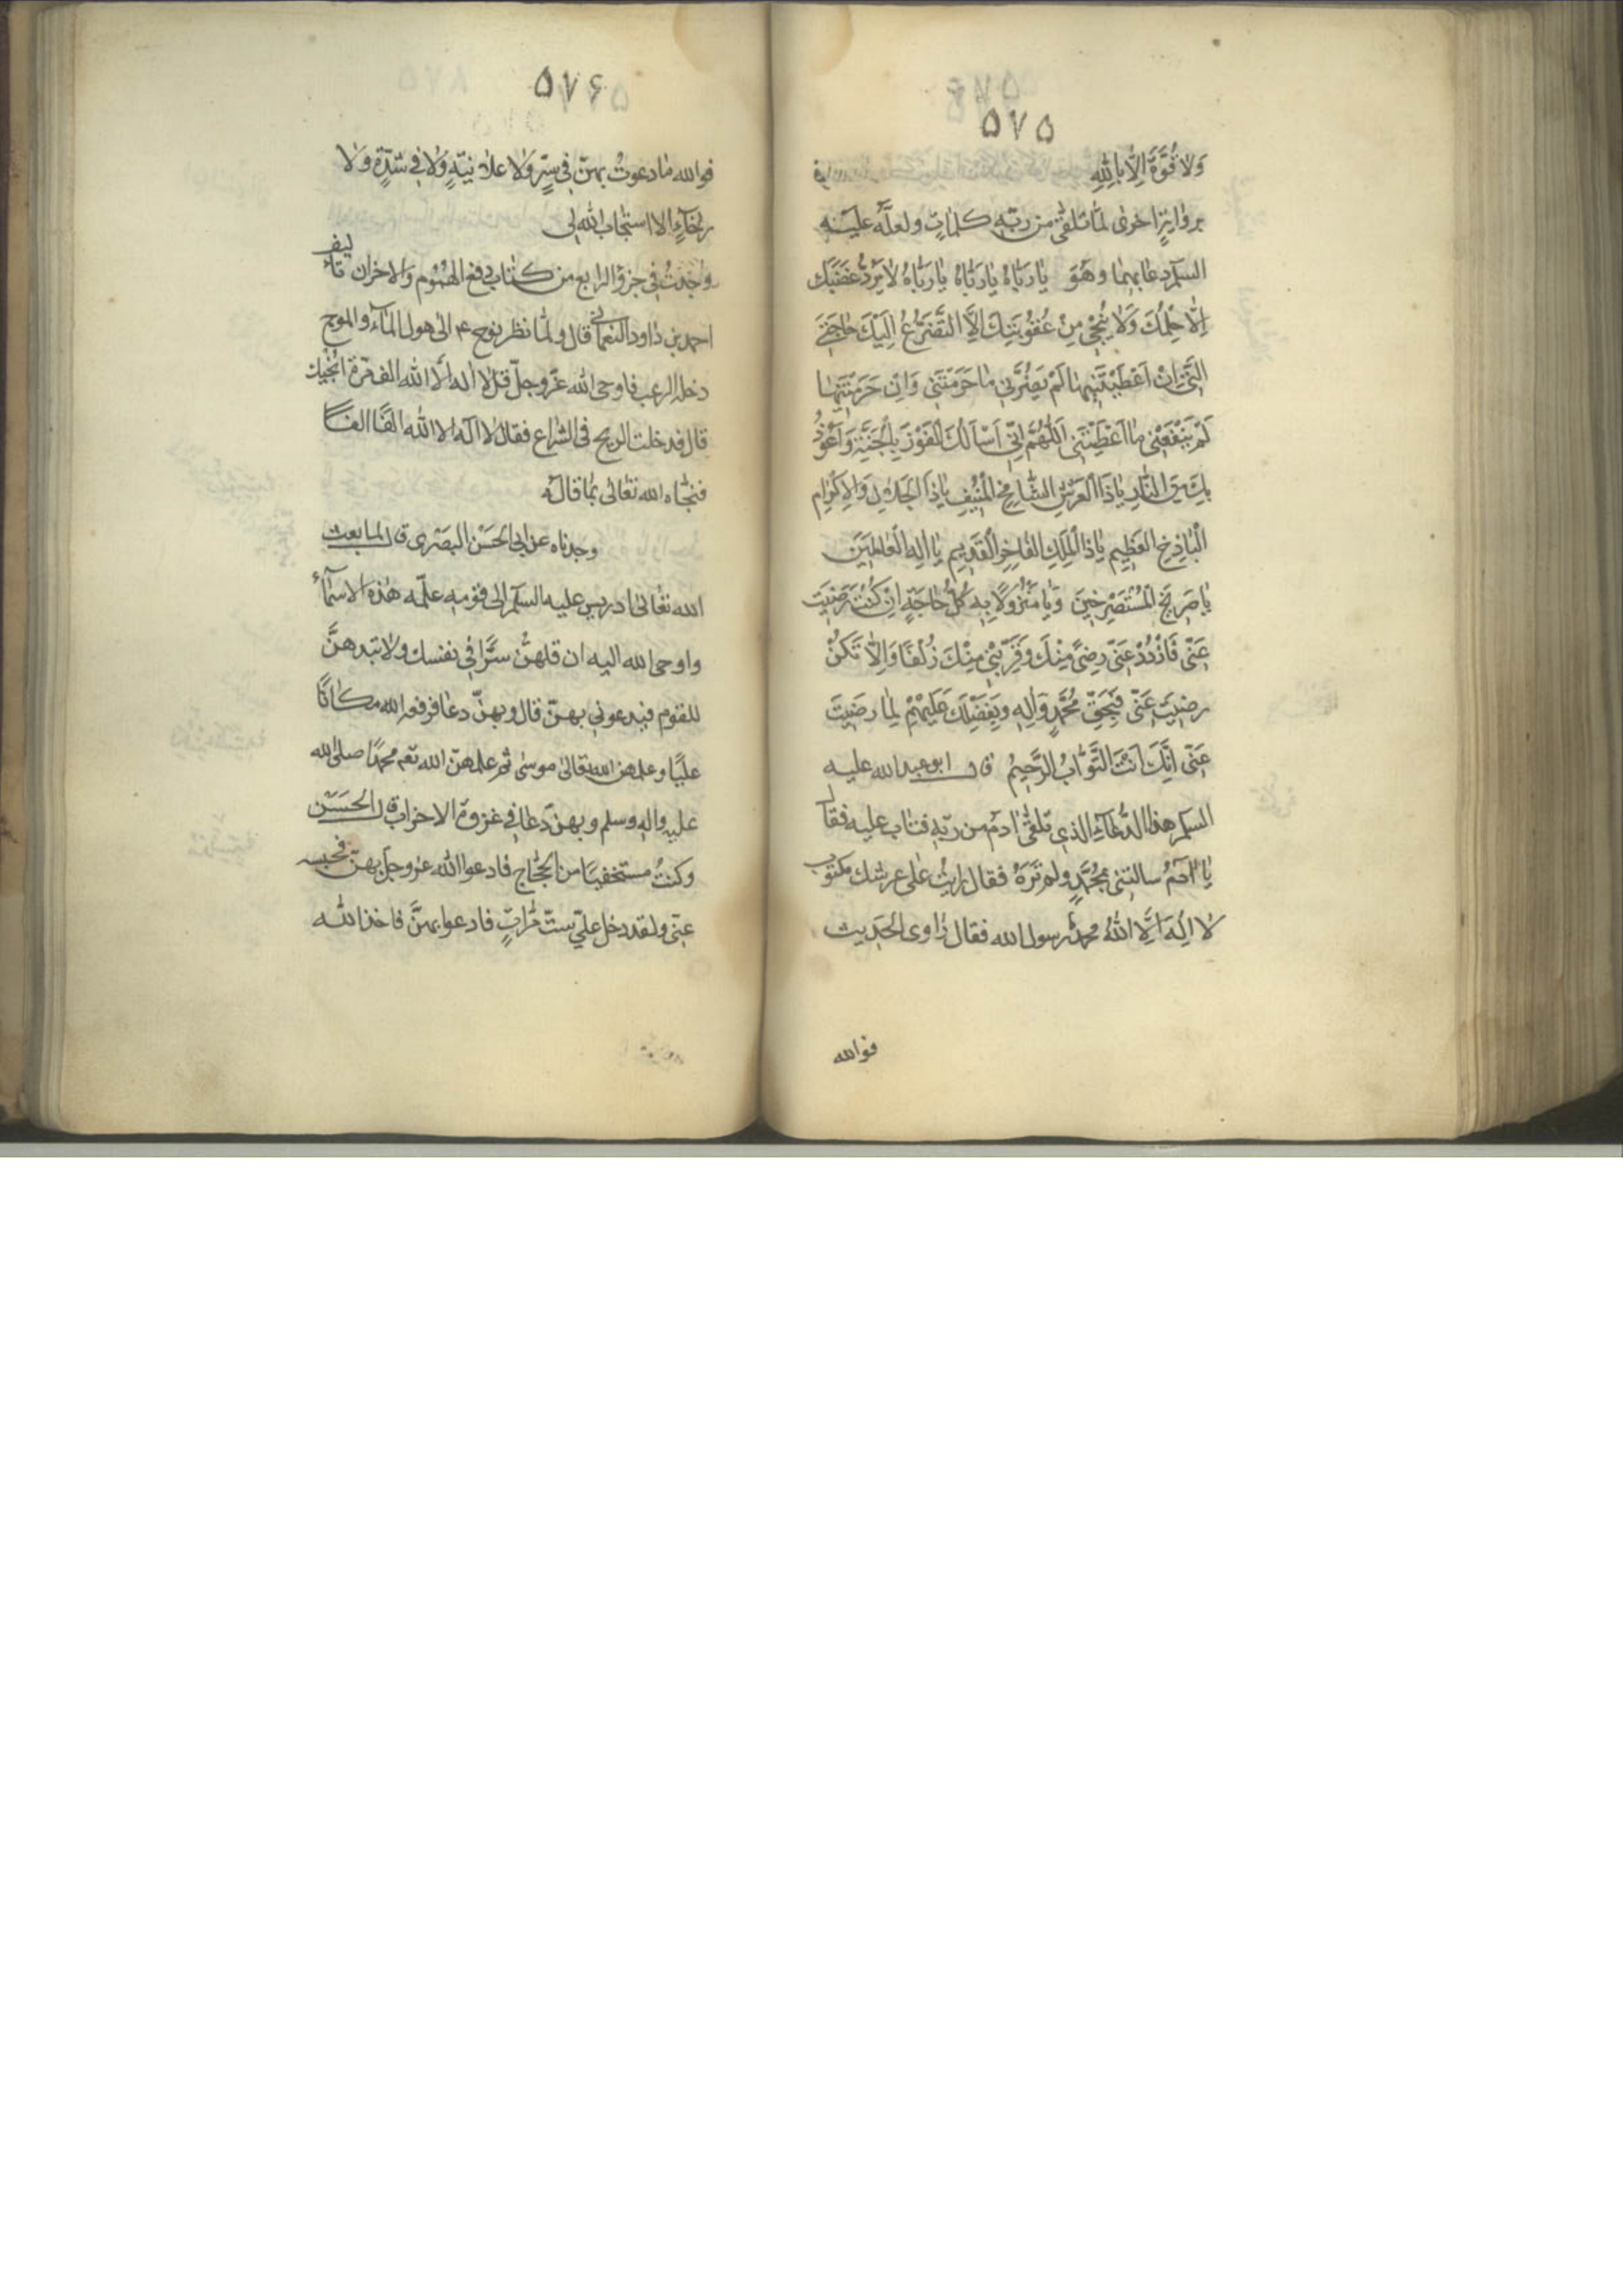 ۵۷۵
وَلاٰ قُوَّةَ اِلّاٰ بِاللّٰهِ
بروٰايةٍ اخرى لمّا تلقّٰى من ربّه كلماتٍ ولعلّه عليه
السلم دعا بهما وهُوَ يٰا رَبّاٰهُ يٰا رَبّاٰهُ يٰا رَبّاٰهُ لاٰ يَرُدُّ غَضَبَكَ
اِلّاٰ حِلْمُكَ وَلاٰ يُنْجٖي مِنْ عُقُوبَتِكَ اِلَّا التَّضَرُّعُ اِلَيْكَ حٰاجَتٖي
الَّتٖي اِنْ اَعْطَيْتَنٖيهٰا لَمْ يَضُرَّنٖي مٰا حَرَمْتَنٖي وَاِنْ حَرَمْتَنٖيهٰا
لَمْ يَنْفَعْنٖي مٰا اَعْطَيْتَنٖي اَللّٰهُمَّ اِنّٖي اَسْاَلُكَ الْفَوْزَ بِالْجَنَّةِ وَاَعُوذُ
بِكَ مِنَ النّٰارِ يٰا ذَا الْعَرْشِ الشّٰامِخِ الْمُنٖيفِ يٰا ذَا الْجَلاٰلِ وَالاِكْرٰامِ
الْبٰاذِخِ الْعَظٖيمِ يٰا ذَا الْمُلْكِ الْفٰاخِرِ الْقَدٖيمِ يٰا اِلٰهَ الْعٰالَمٖينَ
يٰا صَرٖيخَ الْمُسْتَصْرِخٖينَ وَيٰا مَنْزُولاً بِهِ كُلُّ حٰاجَةٍ اِنْ كُنْتَ رَضٖيتَ
عَنّٖي فَازْدَدْ عَنّٖي رِضىً مِنْكَ وَقَرِّبْنٖي مِنْكَ زُلْفىً وَاِلّاٰ تَكُنْ
رَضٖيتَ عَنّٖي فَبِحَقِّ مُحَمَّدٍ وَاٰلِهِ وَبِفَضْلِكَ عَلَيْهِمْ لَمّٰا رَضٖيتَ
عَنّٖي اِنَّكَ اَنْتَ التَّوّٰابُ الرَّحٖيمُ قال ابو عبد الله عليه
السلم هذا الدُّعاء الذي تلقّٰى اٰدم من ربّه فتاب عليه فقال
يٰا اٰدَمُ سالتني بمُحَمَّدٍ ولم تَرَهُ فقال رايتُ على عرشك مكتوب
لاٰ اِلٰهَ اِلَّا اللّٰهُ محمّدٌ رسول الله فقال رٰاوى الحديث
فوالله
۵۷۶
فوالله مٰا دعوتُ بهنّ في سرٍّ ولا علانيّةٍ ولا في شدّةٍ ولا
رخاءٍ الا استجاب الله لي
وجدتُ في جزؤ الرابع من كتاب دفع الهُمُوم وَالاحزان تاليف
احمد بن داود النعماني قال ولمّا نظر نوح ۴ الى هول المآء والموج
دخله الرعب فاوحى الله عزّوجلّ قل لا اله الّا الله الف مرّة انجّيك
قال فدخلت الريح في الشراع فقال لا اله الا الله الفًا الفًا
فنجّاه الله تعالى بما قاله
وجدناه عن ابي الحَسَن البصَرى قال لما بعث
الله تعالى ادريس عليه السلم الى قومه علّمه هذه الاسماء
واوحى الله اليه ان قلهنّ سرًّا في نفسك ولا تبدهنَّ
للقوم فيدعوني بهنّ قال وبهنّ دعا فرفعه الله مكانًا
عليًّا وعلمهن الله تعالى موسى ثم علمهنّ الله تعم محمّدًا صلى الله
عليه واله وسلم وبهنّ دعا في غزوة الاحزاب قال الحَسَن
وكنتُ مستخفيًا من الحجّاج فادعوا الله عزوجل بهنّ فحبسه
عنّى ولقد دخل عليّ ستّ مرّاتٍ فادعوا بهنَّ فاخذ الله